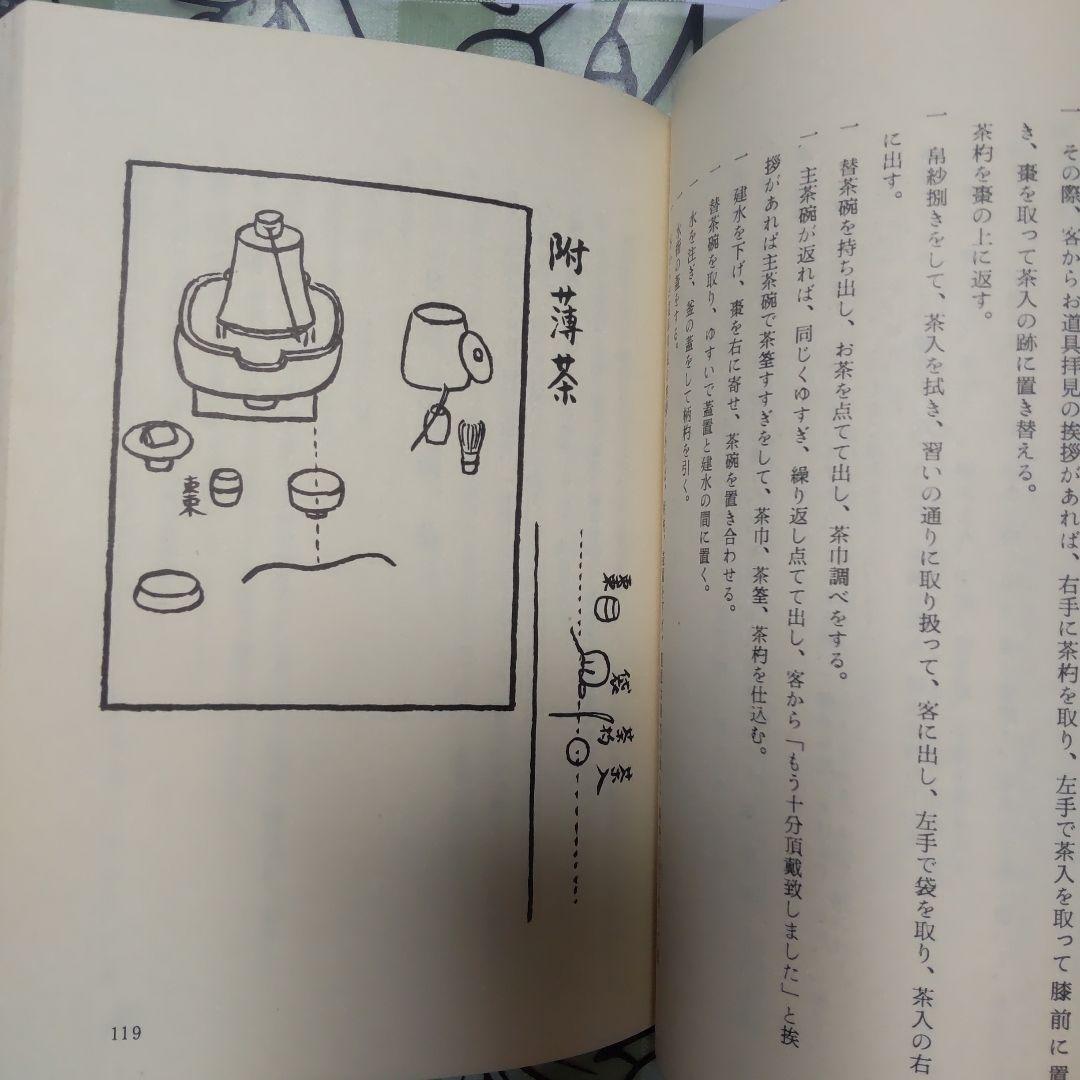 一 その際、客からお道具拝見の挨拶があれば、右手に茶杓を取り、左手で茶入を取って膝前に置
き、棗を取って茶入の跡に置き替える。
茶杓を棗の上に返す。
一 帛紗捌きをして、茶入を拭き、習いの通りに取り扱って、客に出し、左手で袋を取り、茶入の右
に出す。
一 替茶碗を持ち出し、お茶を点てて出し、茶巾調べをする。
一 主茶碗が返れば、同じくゆすぎ、繰り返し点てて出し、客から「もう十分頂戴致しました」と挨
拶があれば主茶碗で茶筌すすぎをして、茶巾、茶筌、茶杓を仕込む。
一 建水を下げ、棗を右に寄せ、茶碗を置き合わせる。
一 替茶碗を取り、ゆすいで蓋置と建水の間に置く。
一 水を注ぎ、釜の蓋をして柄杓を引く。
一 水指の蓋をする。
附薄茶
棗
棗
袋
茶杓
茶入
119